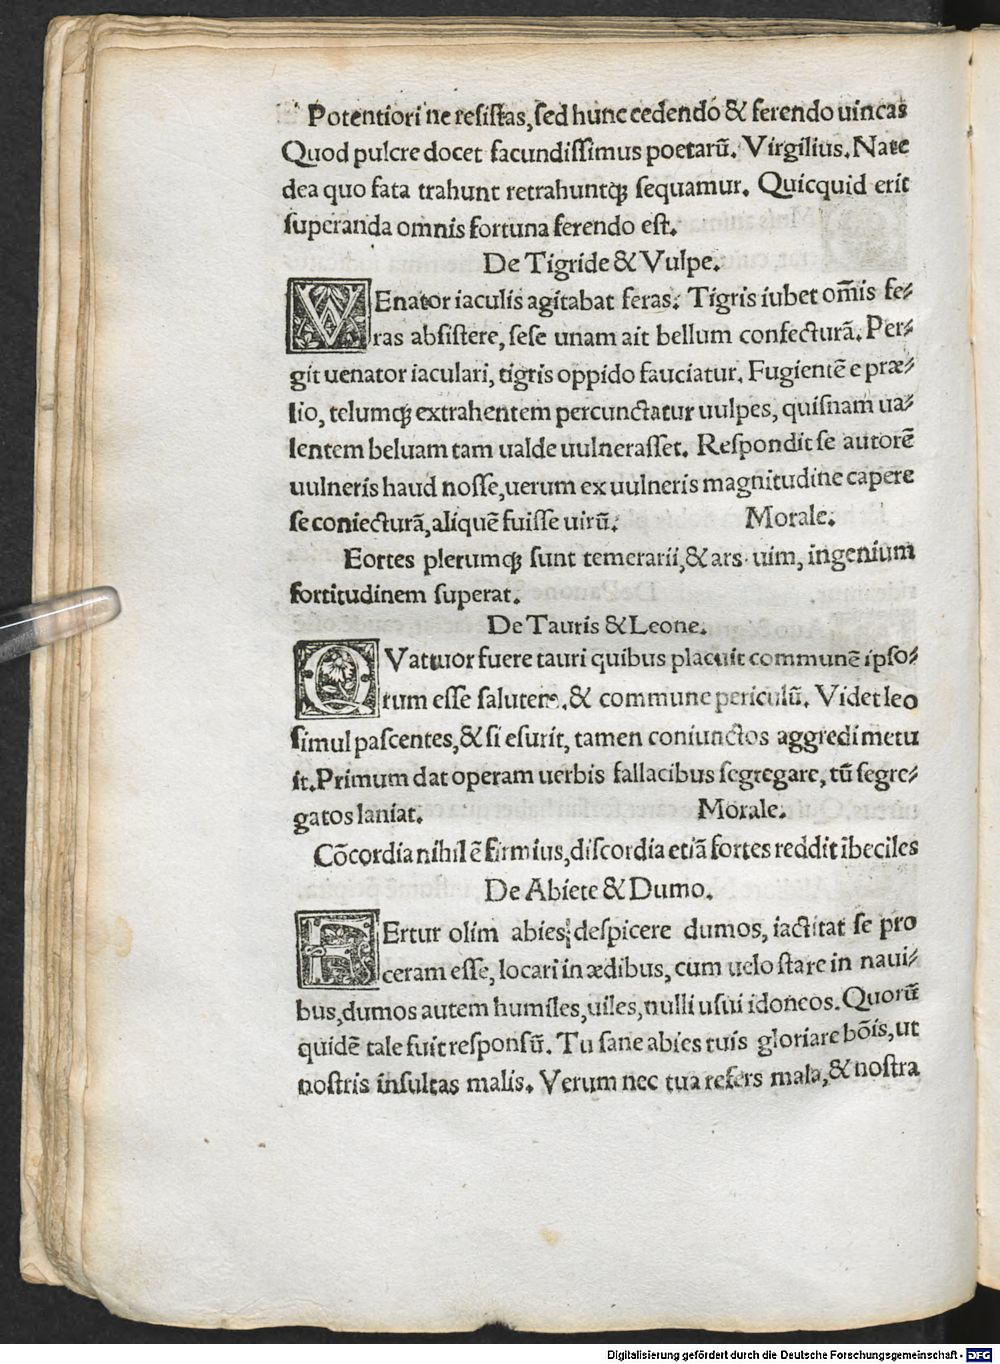 Potentiori ne resistas, sed hunc cedendo & ferendo uincas
Quod pulcre docet facundissimus poetarū. Virgilius. Nate
dea quo fata trahunt retrahuntq; sequamur. Quicquid erit
superanda omnis fortuna ferendo est.
De Tigride & Vulpe.
VEnator iaculis agitabat feras: Tigris iubet om̄is fe-
ras absistere, sese unam ait bellum confecturā. Per-
git uenator iaculari, tigris oppido sauciatur. Fugientē e præ-
lio, telumq; extrahentem percunctatur uulpes, quisnam ua-
lentem beluam tam ualde uulnerasset. Respondit se autorē
uulneris haud nosse, uerum ex uulneris magnitudine capere
se coniecturā, aliquē fuisse uirū. Morale.
Eortes plerumq; sunt temerarii, & ars uim, ingenium
fortitudinem superat.
De Tauris & Leone.
QVattuor fuere tauri quibus placuit communē ipso-
rum esse salutem, & commune periculū. Videt leo
simul pascentes, & si esurit, tamen coniunctos aggredi metu
it. Primum dat operam uerbis fallacibus segregare, tū segre-
gatos laniat. Morale.
Cōcordia nihil ē firmius, discordia etiā fortes reddit ībeciles
De Abiete & Dumo.
FErtur olim abies despicere dumos, iactitat se pro
ceram esse, locari in ædibus, cum uelo stare in naui-
bus, dumos autem humiles, uiles, nulli usui idoneos. Quorū
quidē tale fuit responsū. Tu sane abies tuis gloriare bōis, ut
nostris insultas malis. Verum nec tua refers mala, & nostra
Digitalisierung gefördert durch die Deutsche Forschungsgemeinschaft - DFG